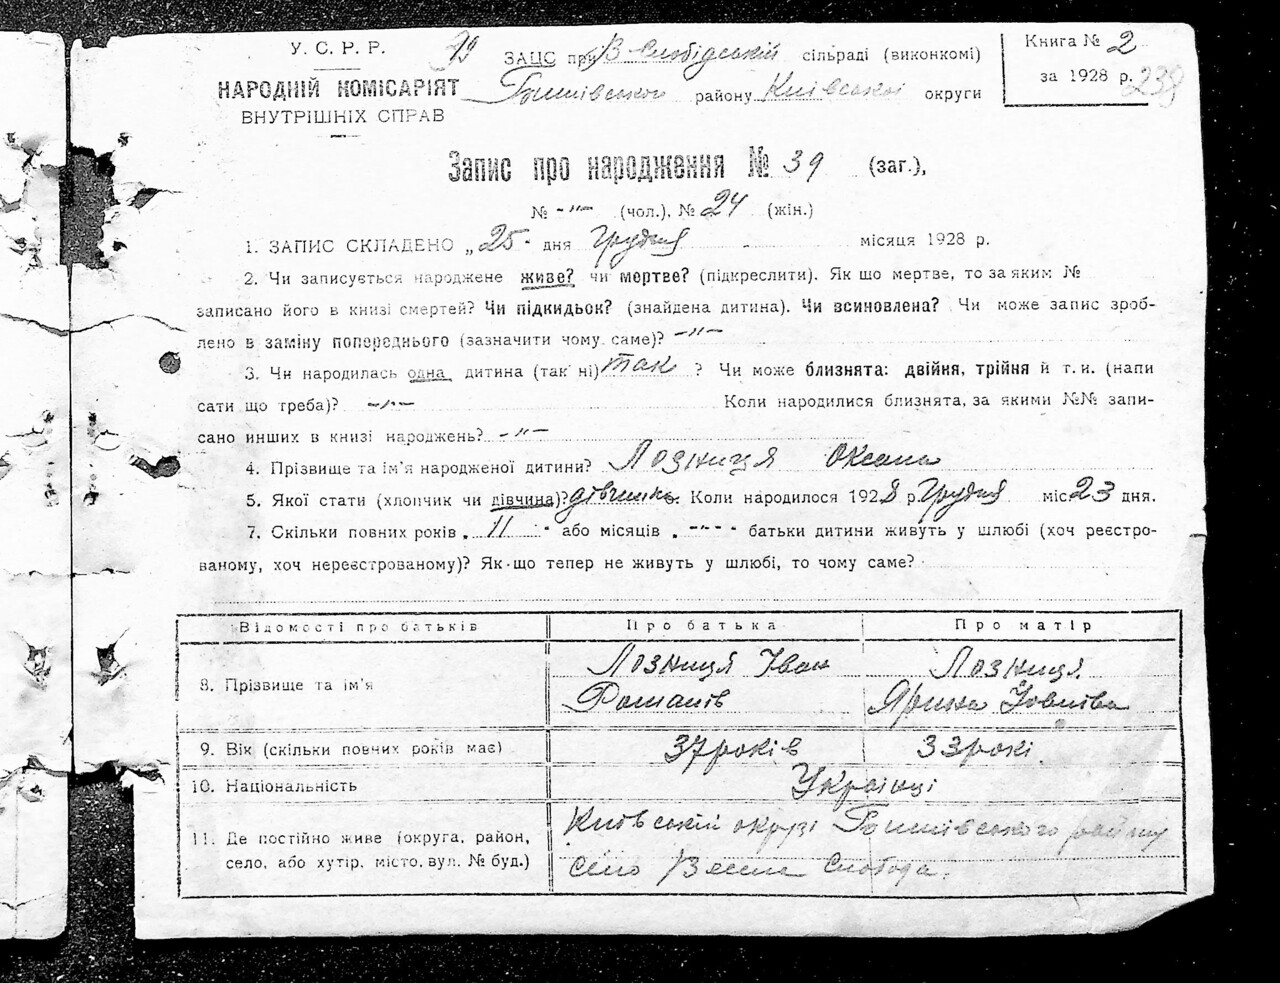 У. С. Р. Р.
НАРОДНІЙ КОМІСАРІЯТ
ВНУТРІШНІХ СПРАВ
ЗАЦС при В Слобідській сільраді (виконкомі)
району Київської округи
Книга № 2
за 1928 р. 239
Запис про народження № 39 (заг.),
№ -"- (чол.), № 24 (жін.)
1. ЗАПИС СКЛАДЕНО „25" дня Грудня місяця 1928 р.
2. Чи записується народжене живе? чи мертве? (підкреслити). Як що мертве, то за яким №
записано його в книзі смертей? Чи підкидьок? (знайдена дитина). Чи всиновлена? Чи може запис зроб-
лено в заміну попереднього (зазначити чому саме)? -"-
3. Чи народилась одна дитина (так ні) так ? Чи може близнята: двійня, трійня й т. и. (напи
сати що треба)? -"- Коли народилися близнята, за якими №№ запи-
сано инших в книзі народжень? -"-
4. Прізвище та ім'я народженої дитини? Лозниця Оксана
5. Якої стати (хлопчик чи дівчина)? дівчинка. Коли народилося 1928 р. Грудня міс 23 дня.
7. Скільки повних років „11" або місяців „-"-" батьки дитини живуть у шлюбі (хоч реєстро-
ваному, хоч нереєстрованому)? Як-що тепер не живуть у шлюбі, то чому саме?
Відомості про батьків Про батька Про матір
8. Прізвище та ім'я Лозниця Іван Романів Лозниця Ярина
9. Вік (скільки повних років має) 37 років 33 рокі
10. Національність Українці
11. Де постійно живе (округа, район, Київській окрузі району
село, або хутір, місто, вул. № буд.) село Слобода.